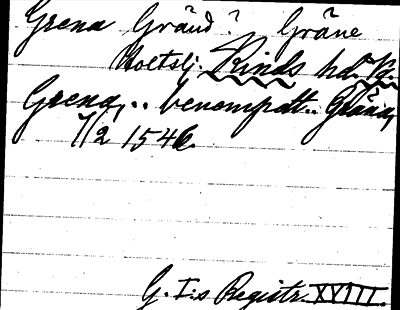 Grena Gränd? Gräne
Holtslj. Kinds hd. R.
Grena, .. benempdt .. Gräna,
7/2 1546.
G. I:s Registr. XVIII.